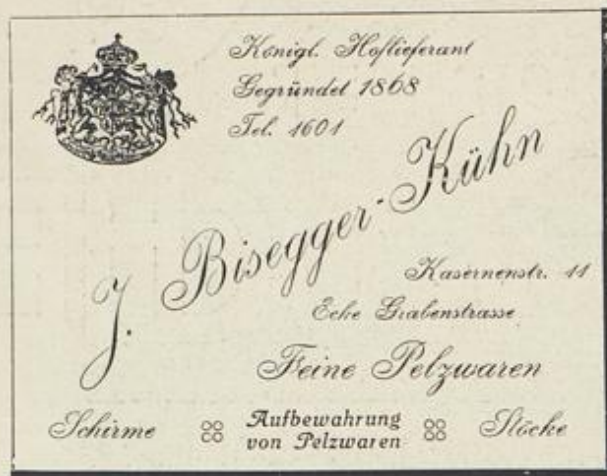 Königl. Hoflieferant
Gegründet 1868
Tel. 1601
J. Bisegger-Kühn
Kasernenstr. 11
Ecke Grabenstrasse
Feine Pelzwaren
Schirme
Aufbewahrung
von Pelzwaren
Stöcke